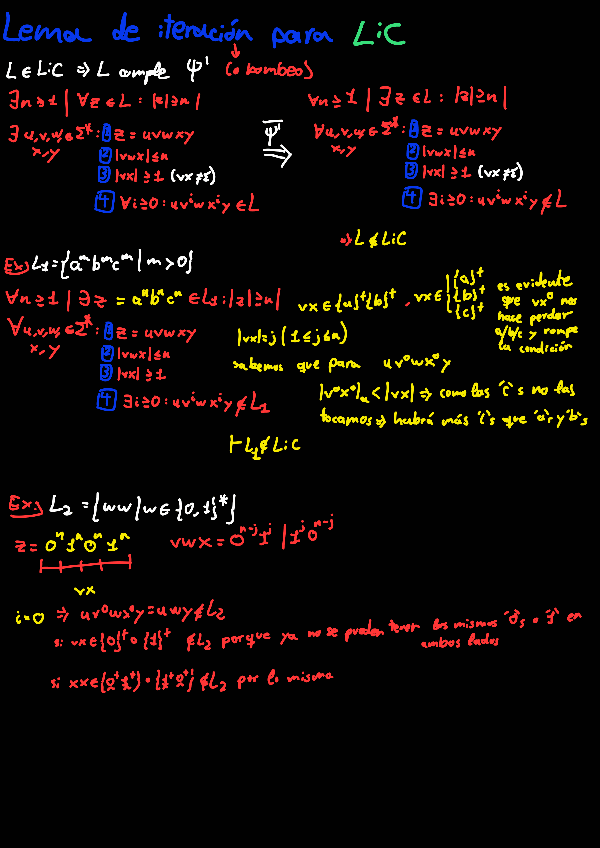 Lema de iteración para LiC
L ∈ LiC ⇒ L cumple Ψ' (o bombeo)
∃n≥1 | ∀z ∈ L : |z|≥n |
∃u,v,w ∈ Σ* : 1 z = uvwxy
x,y 2 |vwx| ≤ n
3 |vx| ≥ 1 (vx≠ε)
4 ∀i≥0 : uvⁱwxⁱy ∈ L
Ψ' ⇒
∀n≥1 | ∃z ∈ L : |z|≥n |
∀u,v,w ∈ Σ* : 1 z = uvwxy
x,y 2 |vwx| ≤ n
3 |vx| ≥ 1 (vx≠ε)
4 ∃i≥0 : uvⁱwxⁱy ∉ L
⇒ L ∉ LiC
Ex) L₁ = {aᵐbᵐcᵐ | m>0}
∀n≥1 | ∃z = aⁿbⁿcⁿ ∈ L₁ : |z|≥n |
∀u,v,w ∈ Σ* : 1 z = uvwxy
x,y 2 |vwx| ≤ n
3 |vx| ≥ 1
4 ∃i≥0 : uvⁱwxⁱy ∉ L₁
vx ∈ {a}⁺{b}⁺ , vx ∈ {a}⁺ {b}⁺ {c}⁺
es evidente
que vx⁰ nos
hace perder
a/b/c y rompe
la condición
|vx|=j (1≤j≤n)
sabemos que para uv⁰wx⁰y
|v⁰x⁰|ₐ < |vx| ⇒ como las 'c's no las
tocamos ⇒ habrá más 'c's que 'a's y 'b's
⊢ L₁ ∉ LiC
Ex) L₂ = {ww | w ∈ {0,1}*}
z = 0ⁿ1ⁿ0ⁿ1ⁿ vwx = 0ⁿ⁻ʲ1ʲ | 1ʲ0ⁿ⁻ʲ
vx
i=0 ⇒ uv⁰wx⁰y = uwy ∉ L₂
si vx ∈ {0}⁺ o {1}⁺ ∉ L₂ porque ya no se pueden tener los mismos '0's o '1' en
ambos lados
si xx ∈ {0⁺1⁺} o {1⁺0⁺} ∉ L₂ por lo mismo